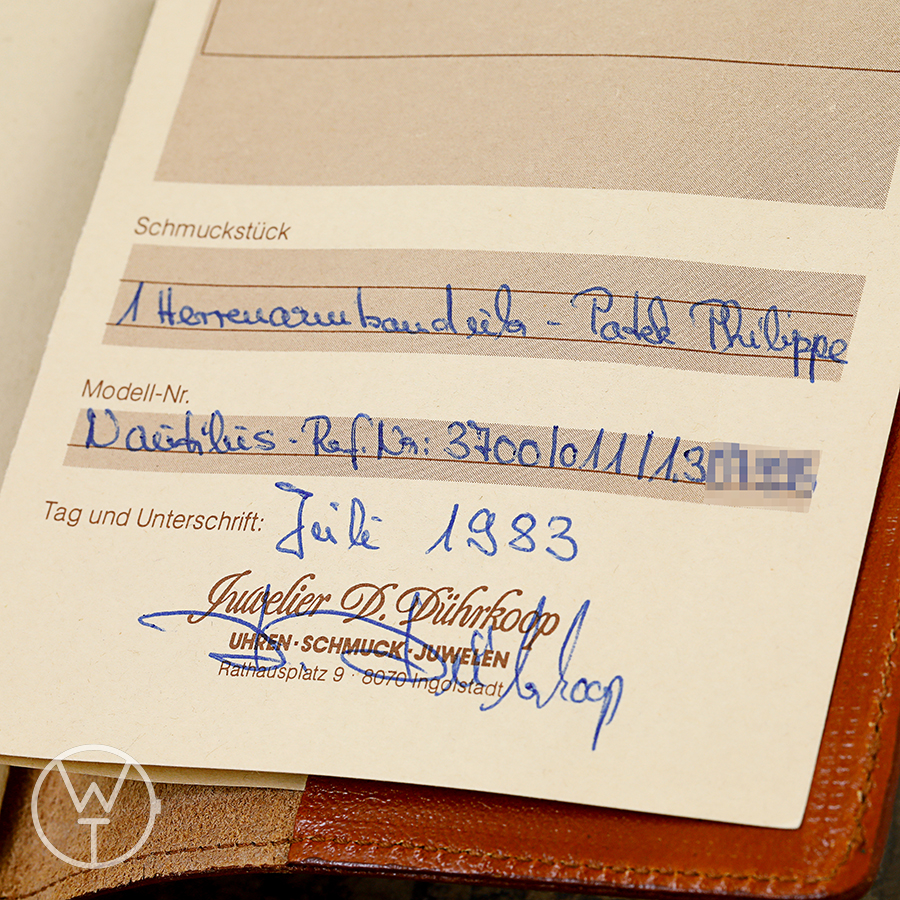 Schmuckstück
1 Herrenarmbanduhr - Patek Philippe
Modell-Nr.
Nautilus - Ref. Nr.: 3700/011/1.3
Tag und Unterschrift: Juli 1983
Juwelier D. Dührkoop
UHREN · SCHMUCK · JUWELEN
Rathausplatz 9 · 8070 Ingolstadt
D. Dührkoop
WT